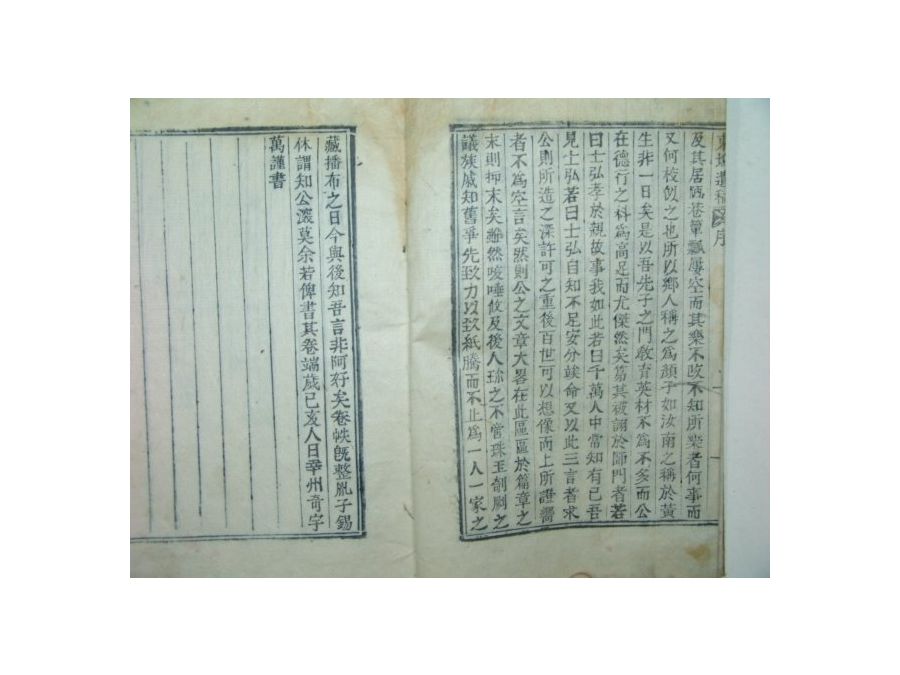 遺稿 序
及其居陋巷簞瓢屢空而其樂不改不知所樂者何事而
又何校似之也所以鄕人稱之爲顔子如汝南之稱於黃
生非一日矣是以吾先子之門敎育英材不爲不多而公
在德行之科爲高足而尤傑然矣第其被詡於師門者若
曰士弘孝於親故事我如此若曰千萬人中當知有已吾
見士弘若曰士弘自知不足安分竢命又以此三言者求
公則所造之深許可之重後百世可以想像而上所證嚮
者不爲空言矣然則公之文章大畧在此區區於篇章之
末則抑末矣雖然咳唾攸及後人珎之不啻珠玉剞劂之
議族戚知舊爭先致力以致紙騰而不止爲一人一家之
藏播布之日今與後知吾言非阿好矣卷帙旣整胤子錫
休謂知公深莫余若俾書其卷端歲己亥人日幸州奇宇
萬謹書